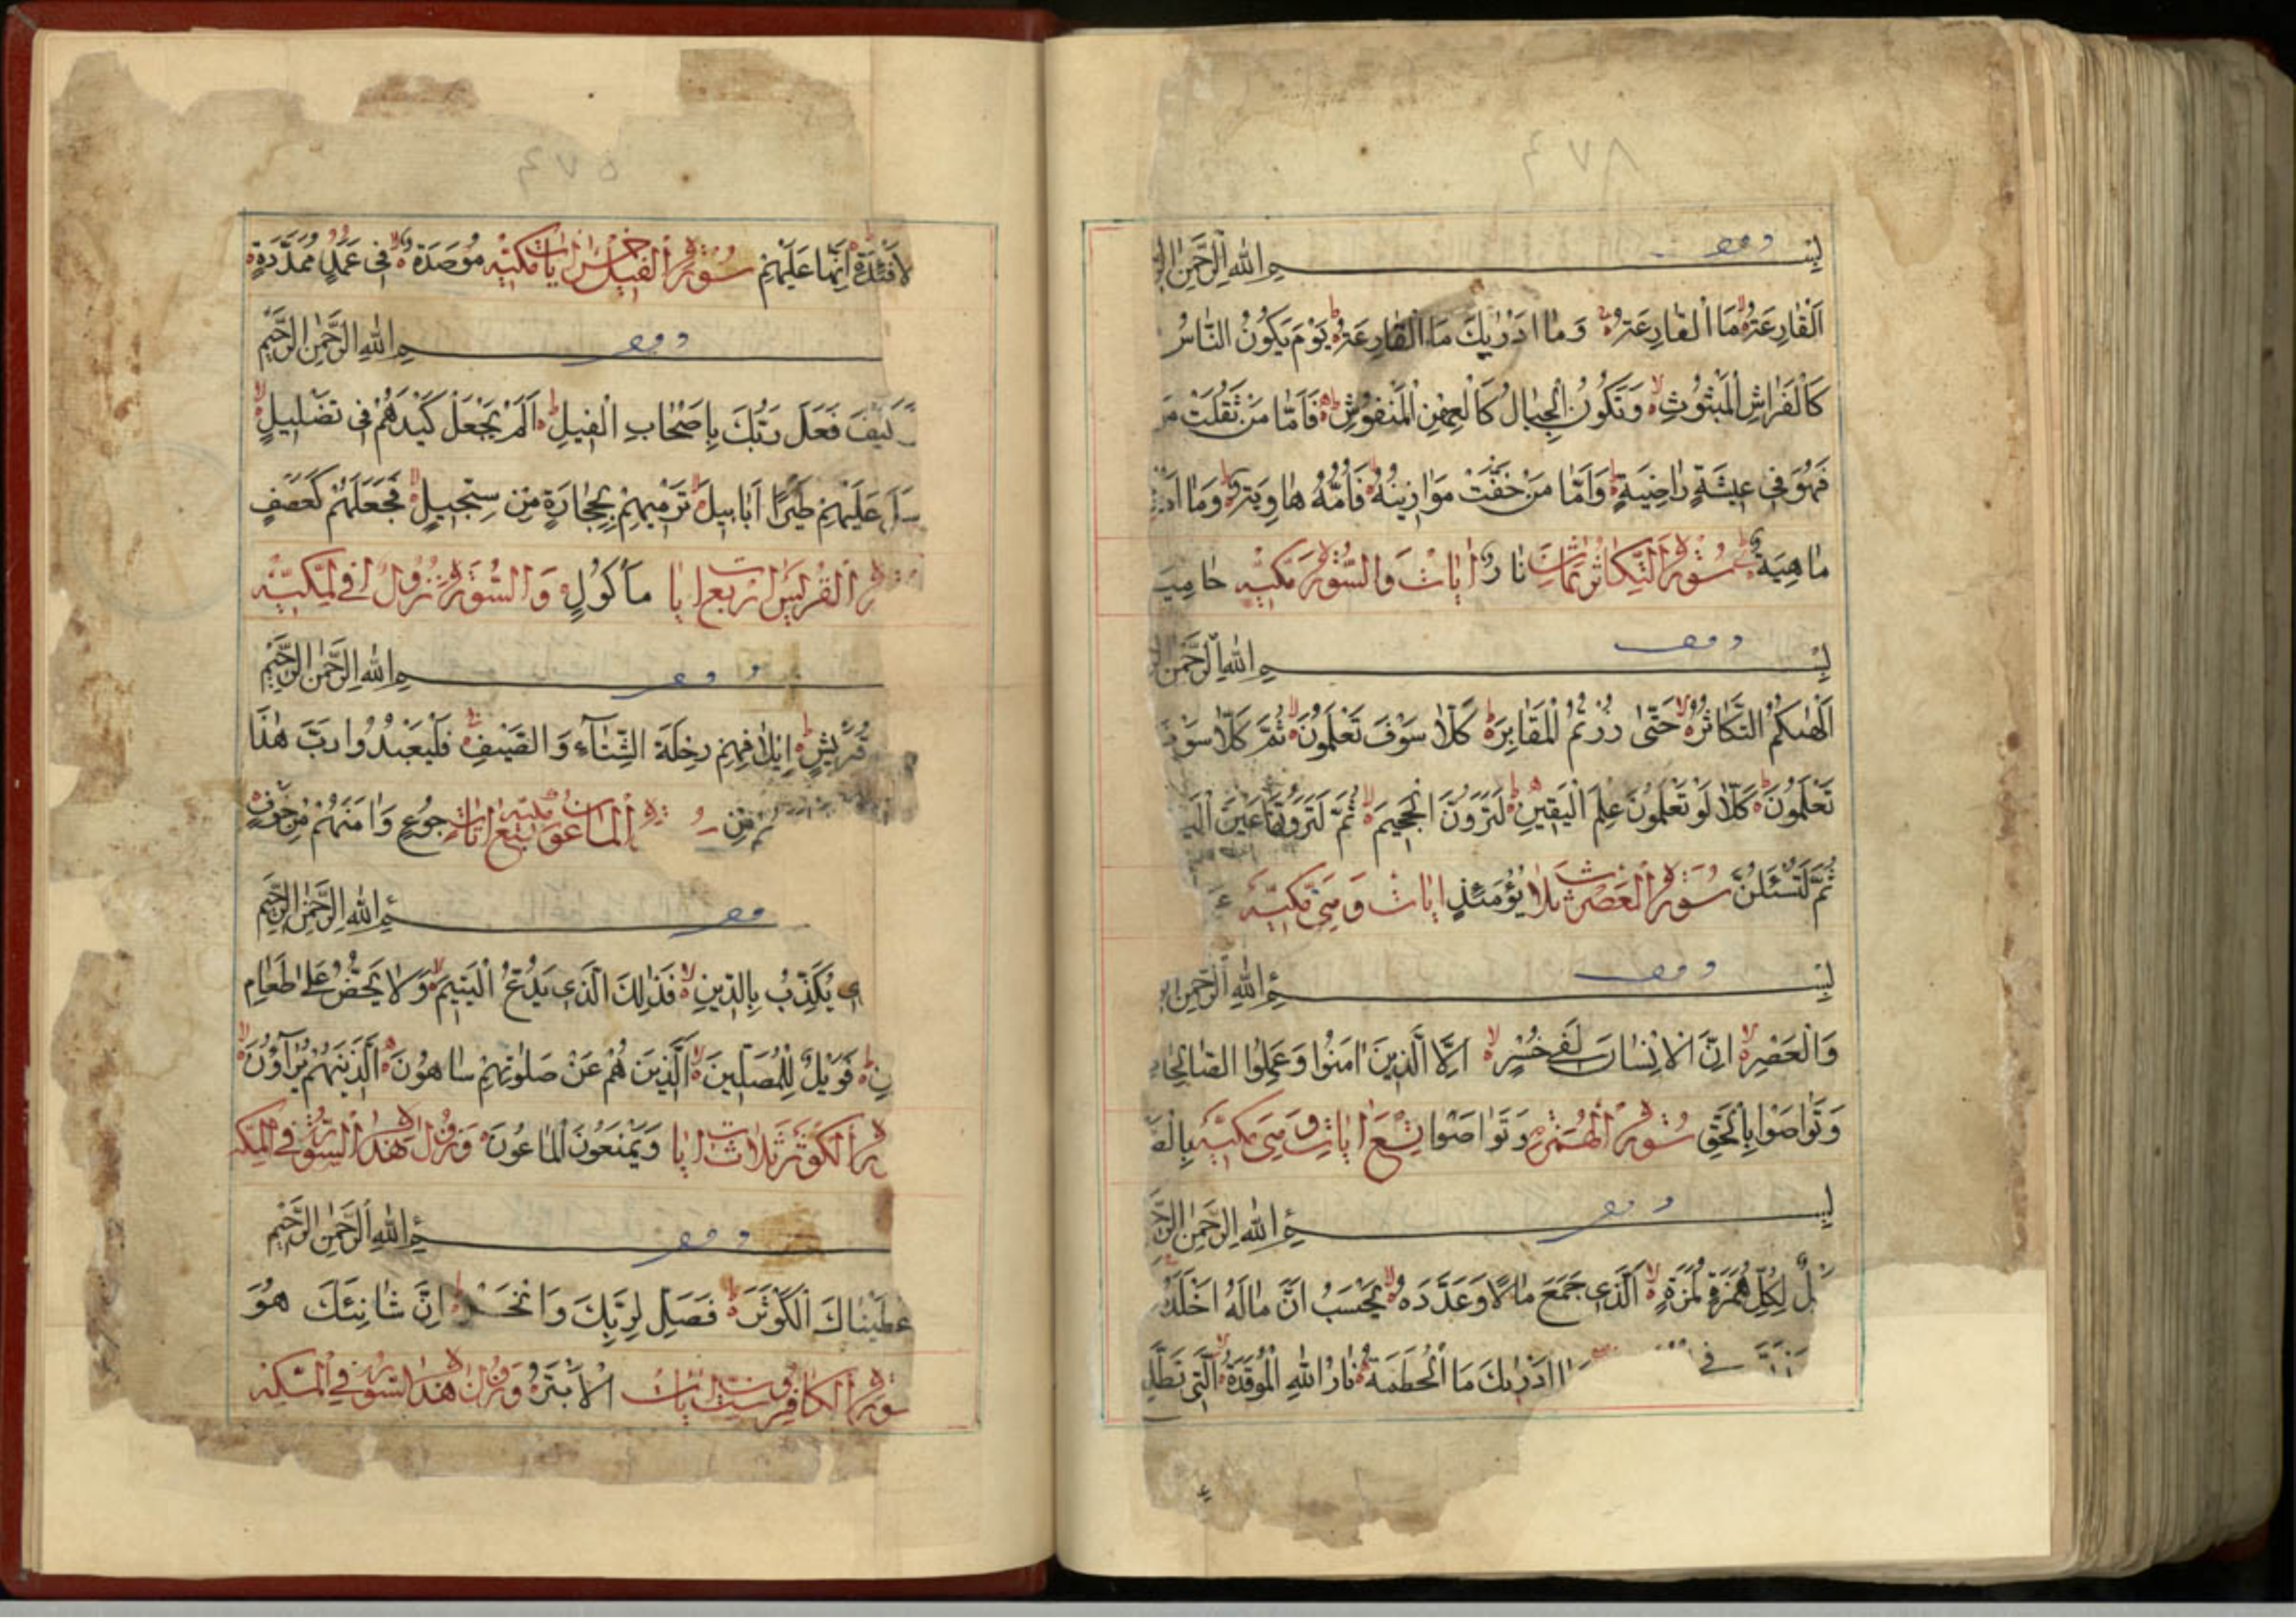 ٤٧٨
بِسْمِ اللّٰهِ الرَّحْمٰنِ
اَلْقٰارِعَةُ مَا الْقٰارِعَةُ وَمٰا اَدْرٰيكَ مَا الْقٰارِعَةُ يَوْمَ يَكُونُ النّٰاسُ
كَالْفَرٰاشِ الْمَبْثُوثِ وَتَكُونُ الْجِبٰالُ كَالْعِهْنِ الْمَنْفُوشِ فَاَمّٰا مَنْ ثَقُلَتْ
فَهُوَ فِى عِيشَةٍ رٰاضِيَةٍ وَاَمّٰا مَنْ خَفَّتْ مَوٰازِينُهُ فَاُمُّهُ هٰاوِيَةٌ وَمٰا
مٰاهِيَهْ سُورَةُ التَّكٰاثُرِ ثَمٰانَ نٰارٌ اٰيٰاتٍ وَالسُّورَةُ مَكِّيَّة حٰامِيَ
بِسْمِ اللّٰهِ الرَّحْمٰنِ
اَلْهٰىكُمُ التَّكٰاثُرُ حَتّٰى زُرْتُمُ الْمَقٰابِرَ كَلّٰا سَوْفَ تَعْلَمُونَ ثُمَّ كَلّٰا سَوْفَ
تَعْلَمُونَ كَلّٰا لَوْ تَعْلَمُونَ عِلْمَ الْيَقِينِ لَتَرَوُنَّ الْجَحِيمَ ثُمَّ لَتَرَوُنَّهٰا عَيْنَ
ثُمَّ لَتُسْئَلُنَّ سُورَةُ الْعَصْرِ ثلاث يَوْمَئِذٍ اٰيٰات وَهِىَ مَكِّيَّة عَ
بِسْمِ اللّٰهِ الرَّحْمٰنِ
وَالْعَصْرِ اِنَّ الْاِنْسٰانَ لَفِى خُسْرٍ اِلَّا الَّذِينَ اٰمَنُوا وَعَمِلُوا الصّٰالِحٰاتِ
وَتَوٰاصَوْا بِالْحَقِّ سُورَةُ الْهُمَزَة وَتَوٰاصَوْا تِسْعَ اٰيٰاتٍ وَهِىَ مَكِّيَّة بِالصَّ
بِسْمِ اللّٰهِ الرَّحْمٰنِ الرَّحِ
يْلٌ لِكُلِّ هُمَزَةٍ لُمَزَةٍ اَلَّذِى جَمَعَ مٰالًا وَعَدَّدَهُ يَحْسَبُ اَنَّ مٰالَهُ اَخْلَدَهُ
فِى مٰا اَدْرٰىكَ مَا الْحُطَمَةُ نٰارُ اللّٰهِ الْمُوقَدَةُ الَّتِى تَطَّلِ
٥٧٤
لْاَفْئِدَةِ اِنَّهٰا عَلَيْهِمْ سُورَةُ الْفِيلِ خَمْس اٰيٰات مَكِّيَّة مُوْصَدَةٌ فِى عَمَدٍ مُمَدَّدَةٍ
مِ اللّٰهِ الرَّحْمٰنِ الرَّحِيمِ
كَيْفَ فَعَلَ رَبُّكَ بِاَصْحٰابِ الْفِيلِ اَلَمْ يَجْعَلْ كَيْدَهُمْ فِى تَضْلِيلٍ
سَلَ عَلَيْهِمْ طَيْرًا اَبٰابِيلَ تَرْمِيهِمْ بِحِجٰارَةٍ مِنْ سِجِّيلٍ فَجَعَلَهُمْ كَعَصْفٍ
ة الْقُرَيْش اَرْبَع اٰيٰا مَأْكُولٍ وَالسُّورَة نُزُول فِى الْمَكِّيَّة
مِ اللّٰهِ الرَّحْمٰنِ الرَّحِيمِ
قُرَيْشٍ اِيلٰافِهِمْ رِحْلَةَ الشِّتٰآءِ وَالصَّيْفِ فَلْيَعْبُدُوا رَبَّ هٰذَا
مْ مِنْ الْمٰاعُون مَكِّيَّة سبع اٰيٰات جُوعٍ وَاٰمَنَهُمْ مِنْ خَوْفٍ
مِ اللّٰهِ الرَّحْمٰنِ الرَّحِيمِ
ى يُكَذِّبُ بِالدِّينِ فَذٰلِكَ الَّذِى يَدُعُّ الْيَتِيمَ وَلٰا يَحُضُّ عَلٰى طَعٰامِ
نِ فَوَيْلٌ لِلْمُصَلِّينَ اَلَّذِينَ هُمْ عَنْ صَلٰوتِهِمْ سٰاهُونَ اَلَّذِينَ هُمْ يُرٰآؤُنَ
رة الْكَوْثَر ثَلٰاث اٰيٰا وَيَمْنَعُونَ الْمٰاعُونَ وَنزل هٰذه السُّورة فِى الْمَكَّة
مِ اللّٰهِ الرَّحْمٰنِ الرَّحِيمِ
عْطَيْنٰاكَ الْكَوْثَرَ فَصَلِّ لِرَبِّكَ وَانْحَرْ اِنَّ شٰانِئَكَ هُوَ
سورة الْكٰافِرون ست اٰيٰات الْاَبْتَرُ وَنزل هٰذه السُّورة فِى الْمَكَّة